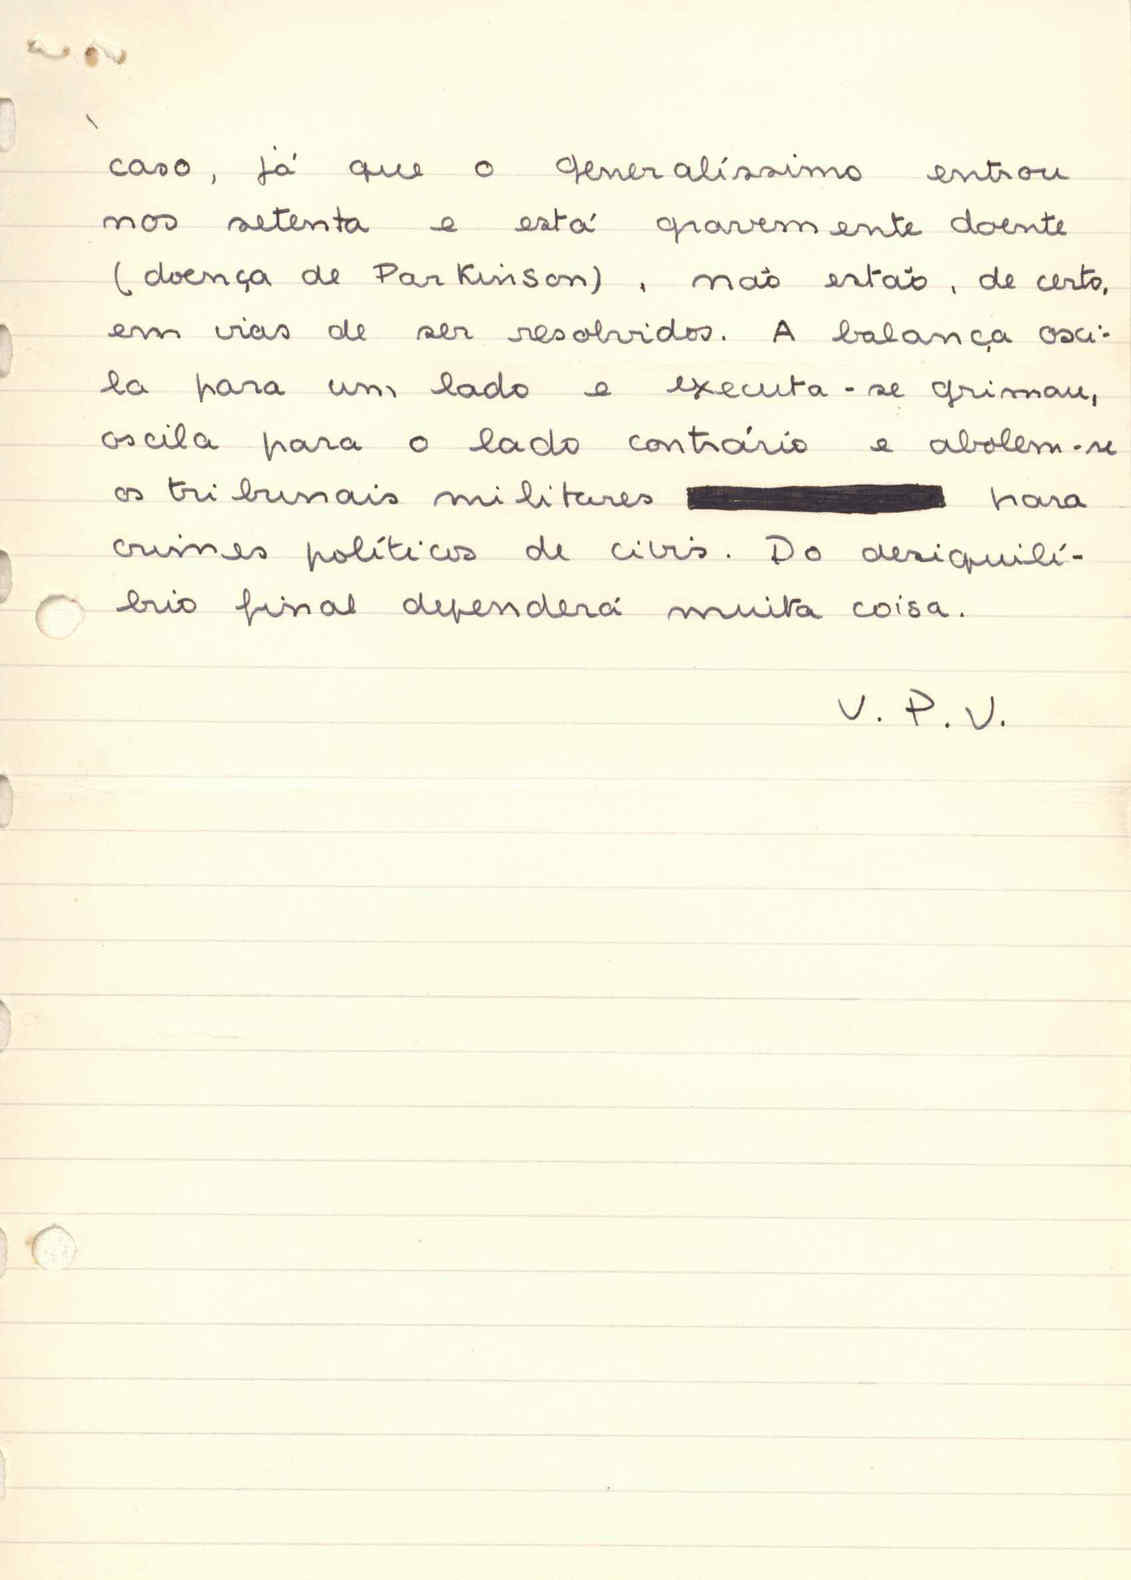 caso, já que o generalíssimo entrou
nos setenta e está gravemente doente
(doença de Parkinson), não estão, de certo,
em vias de ser resolvidos. A balança osci-
la para um lado e executa-se Grimau,
oscila para o lado contrário e abolem-se
os tribunais militares para
crimes políticos de civis. Do desiquilí-
brio final dependerá muita coisa.
V. P. V.